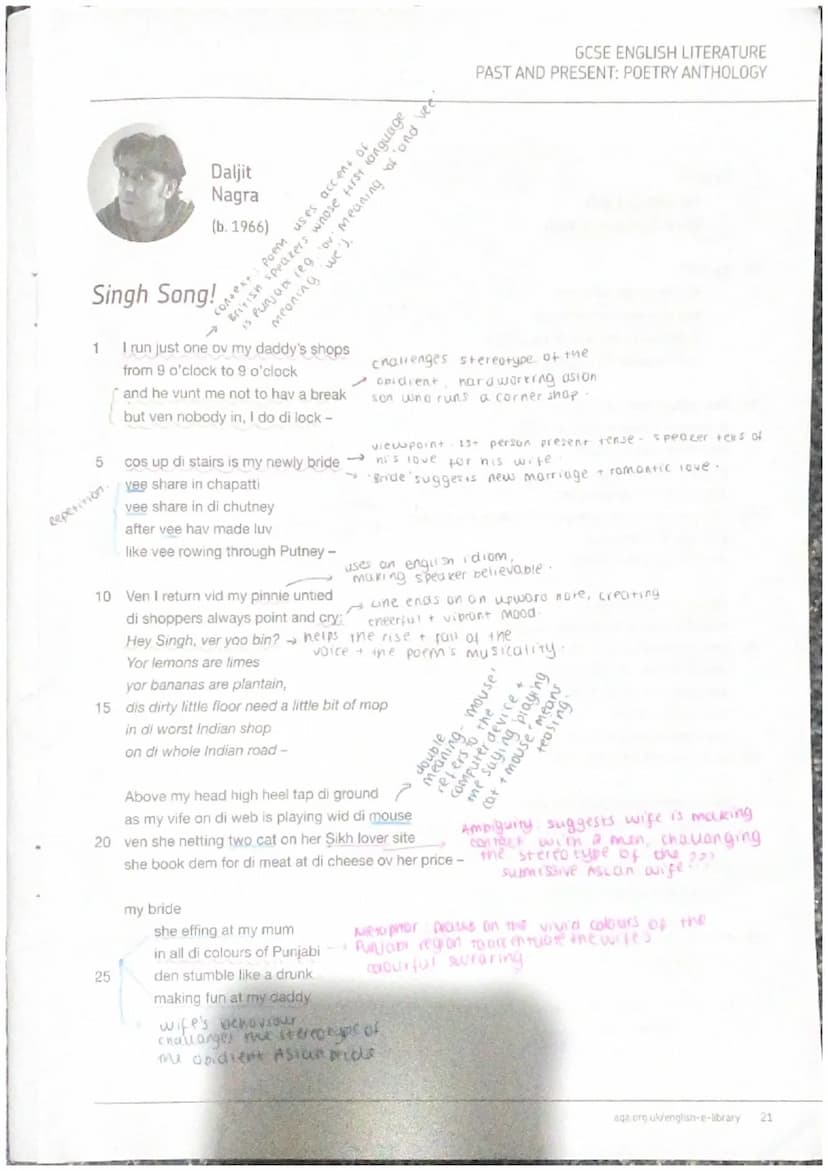 GCSE ENGLISH LITERATURE
PAST AND PRESENT: POETRY ANTHOLOGY
Daljit
Nagra
(b. 1966)
context: poem uses accent of
British speakers whose first language
is Punjabi (eg 'ov' meaning 'of' and 'vee'
meaning 'we').
Singh Song!
1 I run just one ov my daddy's shops
from 9 o'clock to 9 o'clock
and he vunt me not to hav a break
but ven nobody in, I do di lock –
challenges stereotype of the
obidient, hardworking asian
son who runs a corner shop.
5 cos up di stairs is my newly bride
vee share in chapatti
vee share in di chutney
after vee hav made luv
like vee rowing through Putney –
viewpoint - 1st person present tense - speaker tells of
his love for his wife.
'Bride' suggests new marriage + romantic love.
repetition.
10 Ven I return vid my pinnie untied
di shoppers always point and cry:
Hey Singh, ver yoo bin?
Yor lemons are limes
yor bananas are plantain,
15 dis dirty little floor need a little bit of mop
in di worst Indian shop
on di whole Indian road –
uses an english idiom,
making speaker believable.
Line ends on an upward note, creating
cheerful + vibrant mood.
helps the rise + fall of the
voice + the poem's musicality.
double
meaning - 'mouse'
refers to the
computer device +
the saying 'playing
cat + mouse' means
teasing.
Above my head high heel tap di ground
as my vife on di web is playing wid di mouse
20 ven she netting two cat on her Sikh lover site
she book dem for di meat at di cheese ov her price –
Ambiguity: suggests wife is making
contact with a man, challanging
the stereotype of the
submissive Asian wife
my bride
she effing at my mum
in all di colours of Punjabi
25 den stumble like a drunk
making fun at my daddy
Metaphor: draws on the vivid colours of the
Punjabi region to accentuate the wife's
colourful swearing
wife's behaviour
challanges the stereotype of
the obidient Asian bride
aqa.org.uk/english-e-library 21